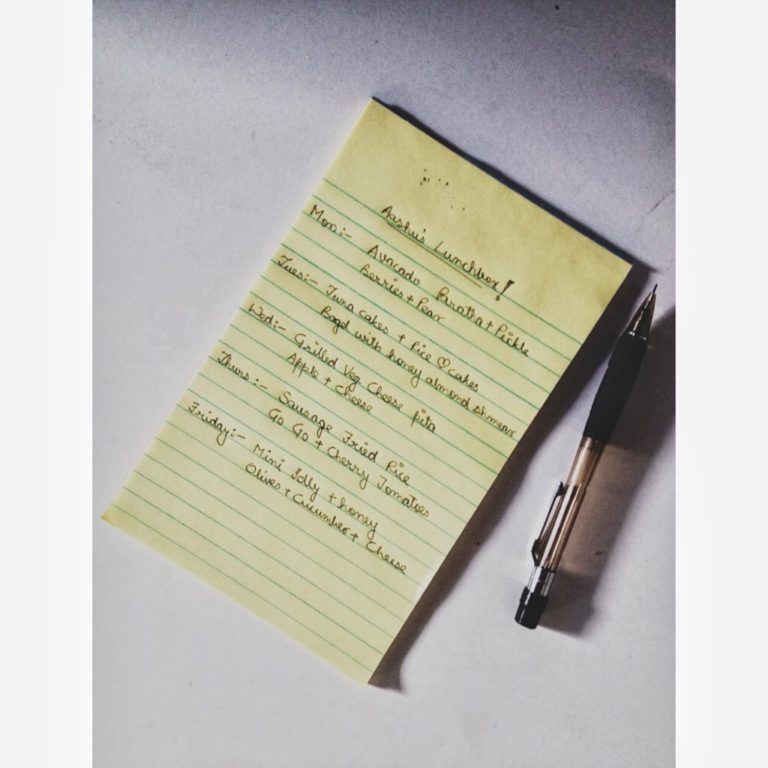 Aashu's Lunchbox!
Mon:- Avocado Paratha + Pickle
Berries + Pear
Tues:- Tuna cakes + Rice ♡ cakes
Bagel with honey almond shmear
Wed:- Grilled Veg Cheese pita
Apple + Cheese
Thurs:- Sausage Fried Rice
Go Go + Cherry Tomatoes
Friday:- Mini Idly + honey
Olives + Cucumber + Cheese